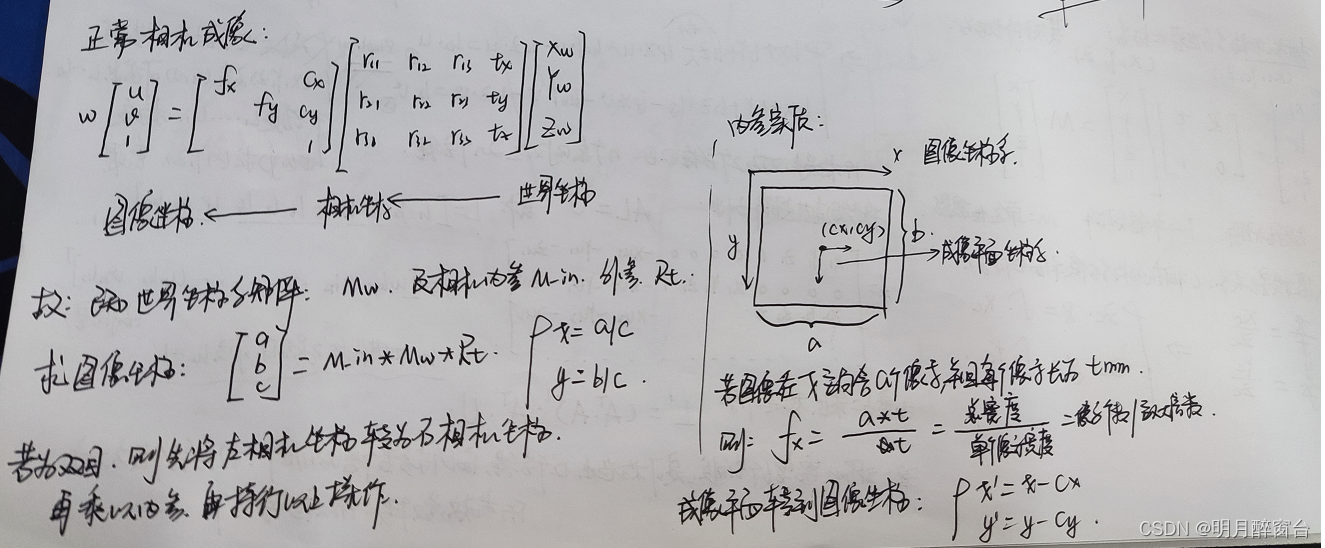 正常相机成像:
w [u v 1] = [fx cx fy cy 1] [r11 r12 r13 tx r21 r22 r23 ty r31 r32 r33 tz] [Xw Yw Zw]
图像坐标 ← 相机坐标 ← 世界坐标
故: 已知世界坐标系矩阵: Mw. 及相机内参 M_in. 外参. Rt.
求图像坐标: [a b c] = M_in * Mw * Rt. { x = a/c
y = b/c.
若为双目. 则先将左相机坐标转为右相机坐标.
再乘以内参. 再执行以上操作.
内参实质:
x 图像坐标系.
y (cx, cy) b.
成像平面坐标系.
a
若图像在 x 方向含 a 个像素, 并且每个像素长为 t mm.
则: fx = a×t / t = 总宽度 / 单个像素宽度
成像平面转到图像坐标: { x' = x - cx
y' = y - cy.
CSDN @明月醉窗台